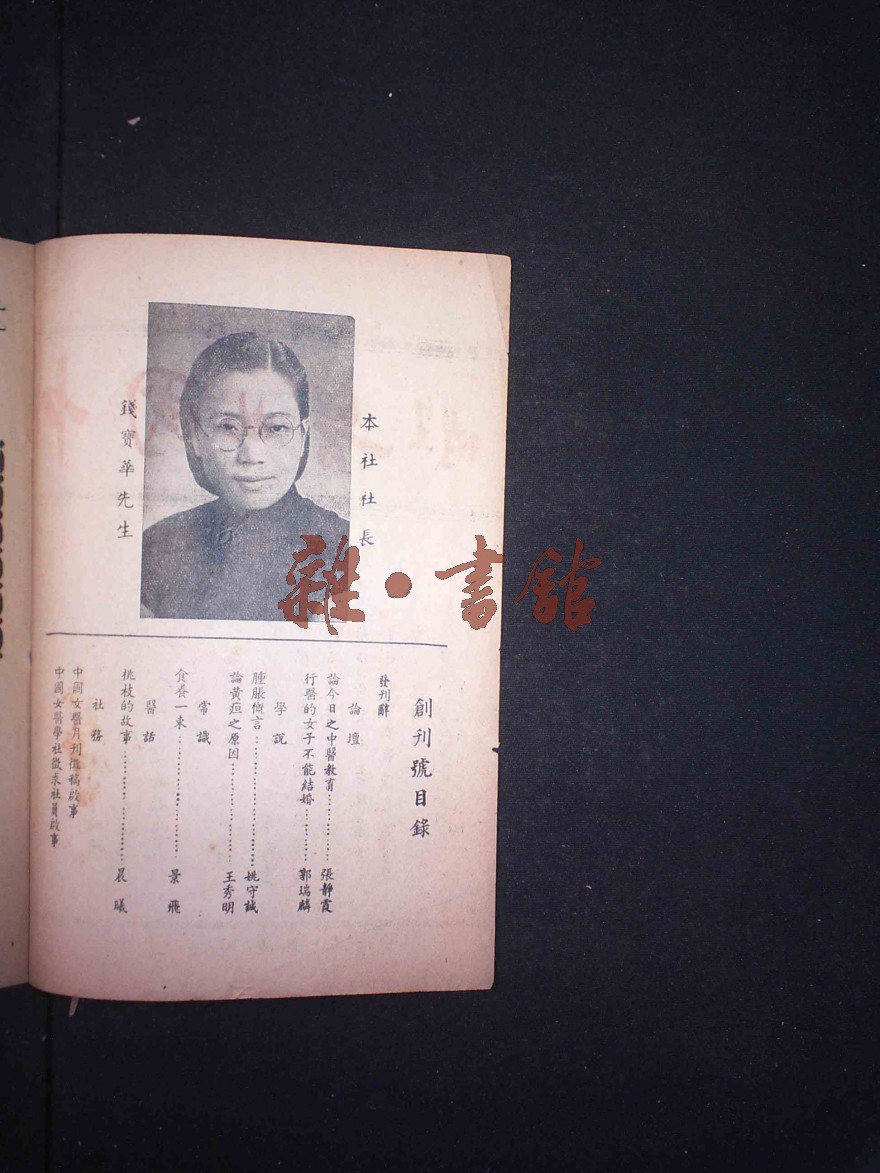 本社社長
錢寶華先生
雜·書館
創刊號目錄
發刊辭
論壇
論今日之中醫教育……………張靜霞
行醫的女子不能結婚…………鄭瑞麟
學說
腫脹㣲言……………………姚守誠
論黃疸之原因…………………王秀明
常識
食養一束………………………景飛
醫話
桃枝的故事……………………晨曦
社務
中國女醫月刊徵稿啟事
中國女醫學社徵求社員啟事